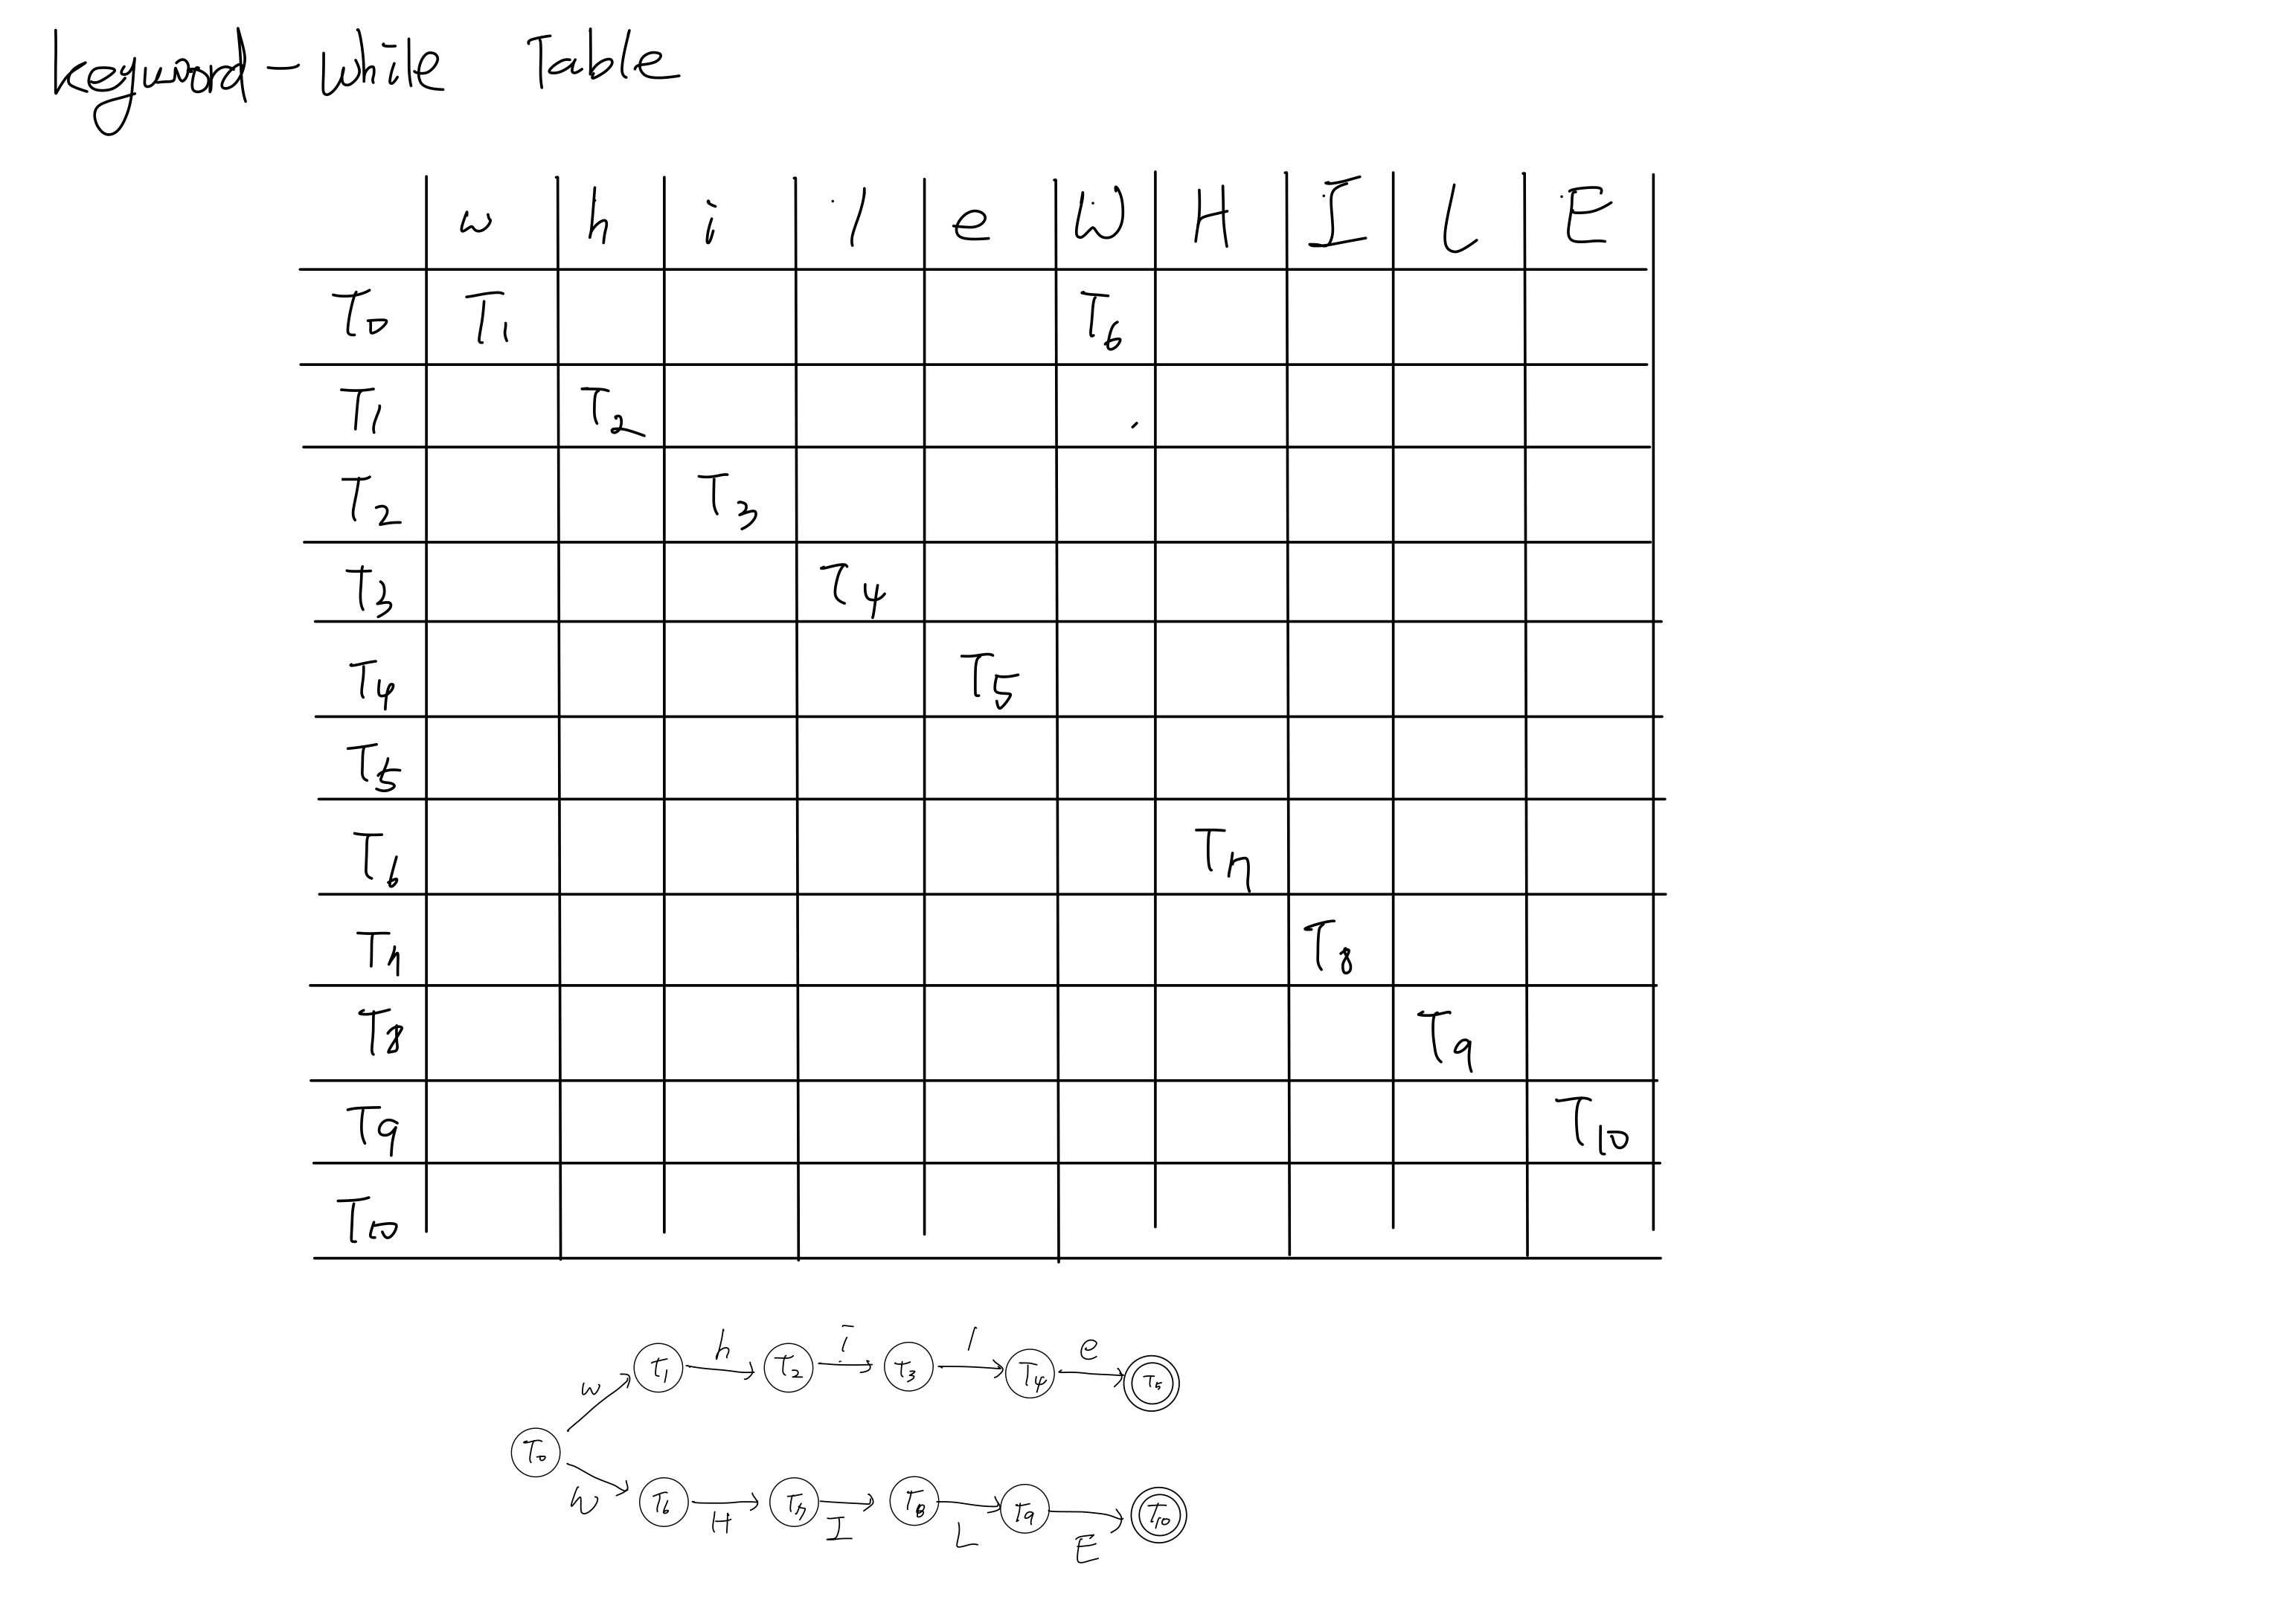 keyword - while Table
w h i l e W H I L E
T0 T1 T6
T1 T2
T2 T3
T3 T4
T4 T5
T5
T6 T7
T7 T8
T8 T9
T9 T10
T10
h i l e
T1 T2 T3 T4 T5
w
T0
W
T6 T7 T8 T9 T10
H I L E